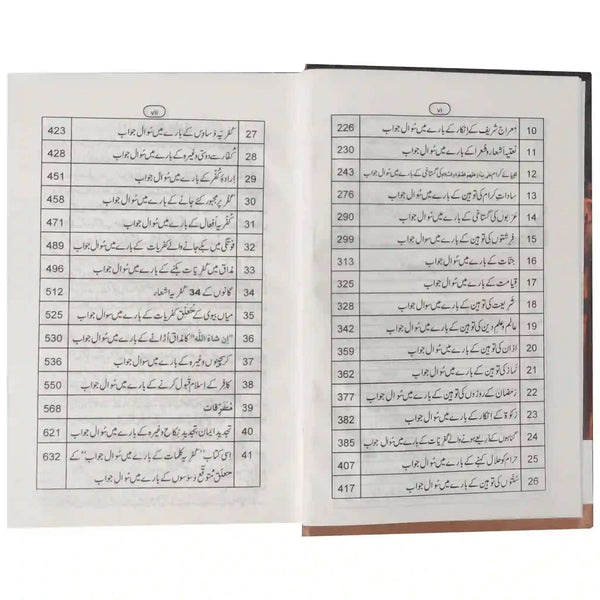 vi
10 معراج شریف کے انکار کے بارے میں سُوال جواب 226
11 نعتیہ اَشعار و شُعَرا کے بارے میں سُوال جواب 230
12 انبیائے کرام کی گستاخی کے بارے میں سُوال جواب 243
13 ساداتِ کرام کی توہین کے بارے میں سُوال جواب 276
14 عَرَبوں کی گستاخی کے بارے میں سُوال جواب 290
15 فِرِشتوں کی توہین کے بارے میں سُوال جواب 299
16 جنّات کے بارے میں سُوال جواب 313
17 قِیامت کے بارے میں سُوال جواب 325
18 شَرِیعت کی توہین کے بارے میں سُوال جواب 328
19 عالم و علمِ دین کی توہین کے بارے میں سُوال جواب 342
20 اذان کی توہین کے بارے میں سُوال جواب 359
21 نَماز کی توہین کے بارے میں سُوال جواب 362
22 رَمَضان کے روزوں کی توہین کے بارے میں سُوال جواب 377
23 زکوٰۃ کے انکار کے بارے میں سُوال جواب 382
24 گناہوں کے ذریعے ہونے والے کفریات کے بارے میں سُوال جواب 385
25 حرام کو حلال کہنے کے بارے میں سُوال جواب 407
26 سُنّتوں کی توہین کے بارے میں سُوال جواب 417
vii
27 کُفریہ وَساوِس کے بارے میں سُوال جواب 423
28 کُفّار سے دوستی وغیرہ کے بارے میں سُوال جواب 428
29 اِرادۂ کُفر کے بارے میں سُوال جواب 451
30 کُفر پر مجبور کئے جانے کے بارے میں سُوال جواب 458
31 کُفریہ اَفعال کے بارے میں سُوال جواب 471
32 فوتگی میں بکے جانے والے کفریات کے بارے میں سُوال جواب 489
33 مذاق میں کفریات بکنے کے بارے میں سُوال جواب 496
34 گانوں کے 34 کفریہ اشعار 512
35 میاں بیوی کے مُتَعلّق کفریات کے بارے میں سوال جواب 525
36 "اِن شَاءَ اللہ" کا مذاق اُڑانے کے بارے میں سُوال جواب 530
37 کرسچین وغیرہ کے بارے میں سوال جواب 536
38 کافر کے اسلام قبول کرنے کے بارے میں سُوال جواب 550
39 مُتَفَرِّقات 568
40 تجدیدِ ایمان، تجدیدِ نِکاح وغیرہ کے بارے میں سُوال جواب 621
41 اسی کتاب "کفریہ کلمات کے بارے میں سوال جواب" کے 632
مُتَعلّق مُتَوقّع وَسوسوں کے بارے میں سُوال جواب